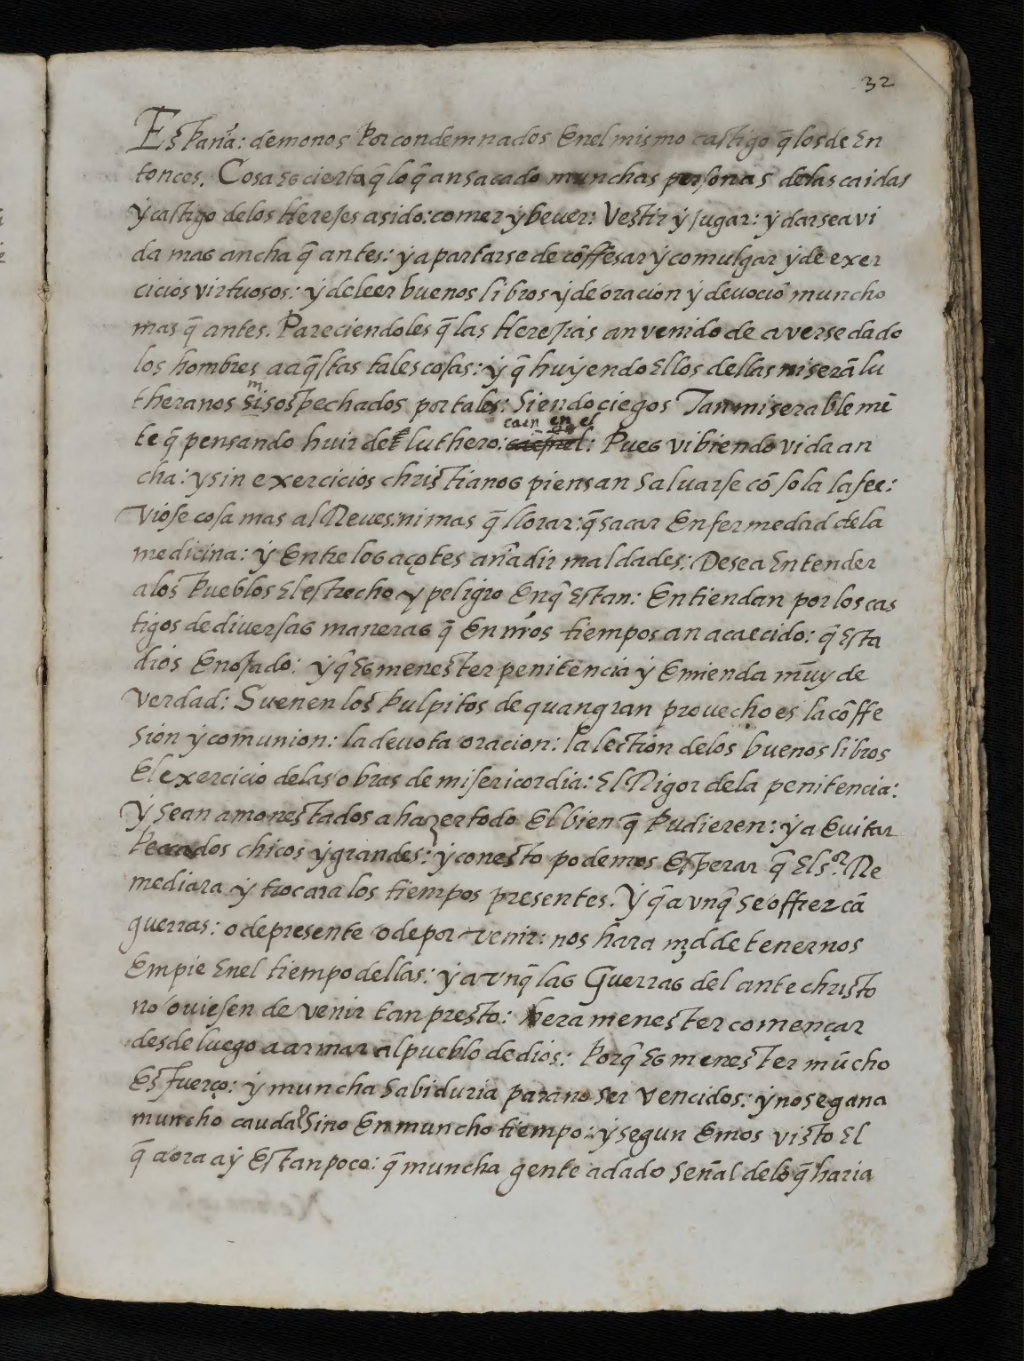 32
España: demonos por condemnados En el mismo castigo q̃ los de En
tonces. Cosa es cierta q̃ lo q̃ an sacado munchas personas de las caidas
y castigo de los Herejes a sido: comer y bever: Vestir y jugar: y darse a vi
da mas ancha q̃ antes: y apartarse de cõffesar y comulgar y de exer
cicios virtuosos: y de leer buenos libros y de oracion y devociõ muncho
mas q̃ antes. Pareciendoles q̃ las Herejias an venido de averse dado
los hombres a aq̃stas tales cosas: y q̃ huyendo Ellos dellas ni serã lu
theranos ni sospechados por tales: Siendo ciegos Tan miserableme͂
te q̃ pensando huir de luthero: caen en el: Pues vibiendo vida an
cha: y sin exercicios christianos piensan salvarse cõ sola la fee:
Viose cosa mas al Reves: ni mas q̃ llorar: q̃ sacar Enfermedad de la
medicina: y Entre los açotes añadir maldades: Desea Entender
a los pueblos El estrecho y peligro En q̃ Estan: Entiendan por los cas
tigos de diversas maneras q̃ En nr̃os tiempos an acaecido: q̃ Esta
dios Enojado: y q̃ es menester penitencia y Emienda mũy de
verdad: Suenen los pulpitos de quan gran provecho es la cõffe
sion y comunion: la devota oracion: la lection de los buenos libros
El exercicio de las obras de misericordia: El Rigor de la penitencia:
Y sean amonestados a hazer todo El bien q̃ pudieren: y a Evitar
peccados chicos y grandes: y con esto podemos Esperar q̃ El s.or Re
mediara y trocara los tiempos presentes. Y q̃ avnq̃ se offrezcã
guerras: o de presente o de por venir: nos hara mrd de tenernos
En pie En el tiempo dellas: y avnq̃ las Guerras del antechristo
no oviesen de venir tan presto: hera menester començar
desde luego a armar al pueblo de dios: porq̃ es menester mũcho
Esfuerço: y muncha sabiduria para no ser vencidos: y no se gana
muncho caudal sino En muncho tiempo: y segun Emos visto El
q̃ aora ay Es tan poco: q̃ muncha gente a dado señal de lo q̃ haria